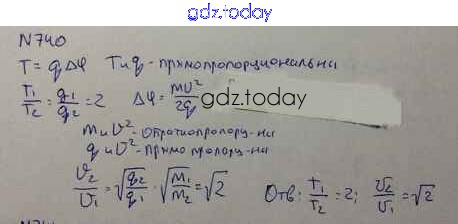 gdz.today
N740
T = qΔφ T и q - прямопропорциональны
T₁/T₂ = q₁/q₂ = 2 Δφ = mU²/2q
gdz.today
m и U² - обратнопропорц-ны
q и U² - прямо пропорц-ны
U₂/U₁ = √(q₂/q₁) · √(m₁/m₂) = √2 Отв: T₁/T₂ = 2; U₂/U₁ = √2